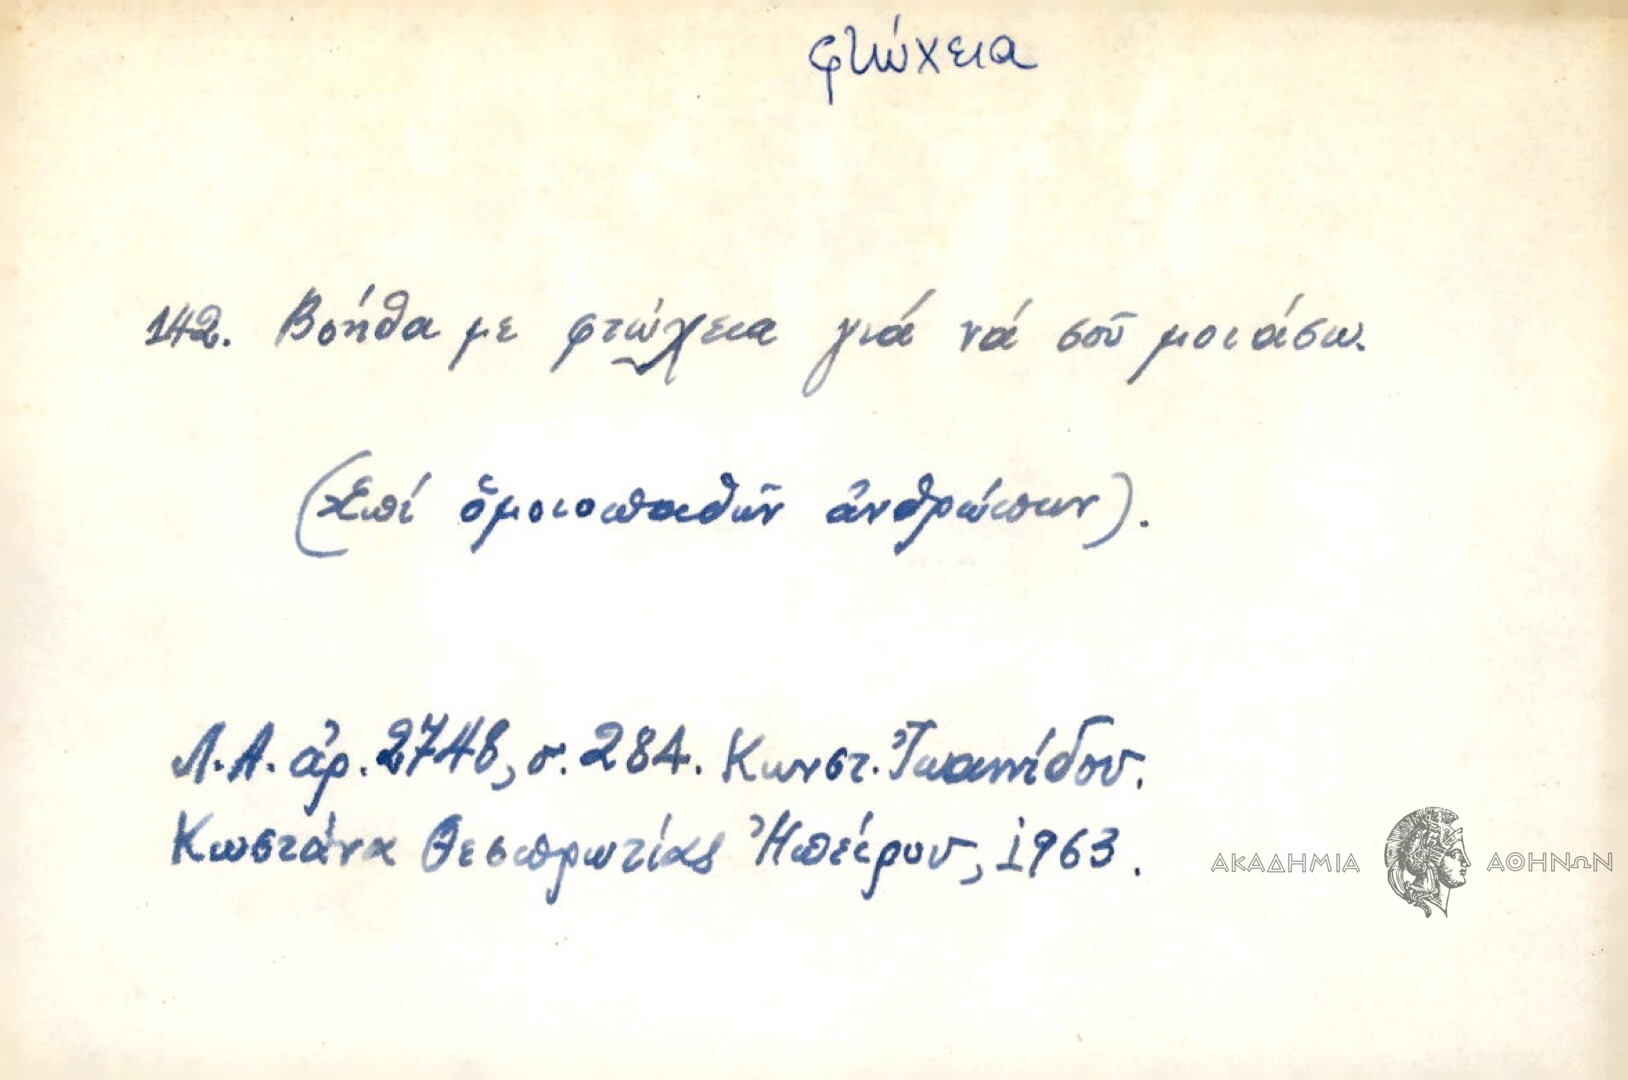 φτώχεια
142. Βοήθα με φτώχεια γιά νά σοῦ μοιάσω.
(Ἐπί ὁμοιοπαθῶν ἀνθρώπων).
Λ.Α. ἀρ. 2748, σ. 284. Κωνστ. Ἰωαννίδου.
Κωστάνα Θεσπρωτίας Ἠπείρου, 1963.
ΑΚΑΔΗΜΙΑ ΑΘΗΝΩΝ